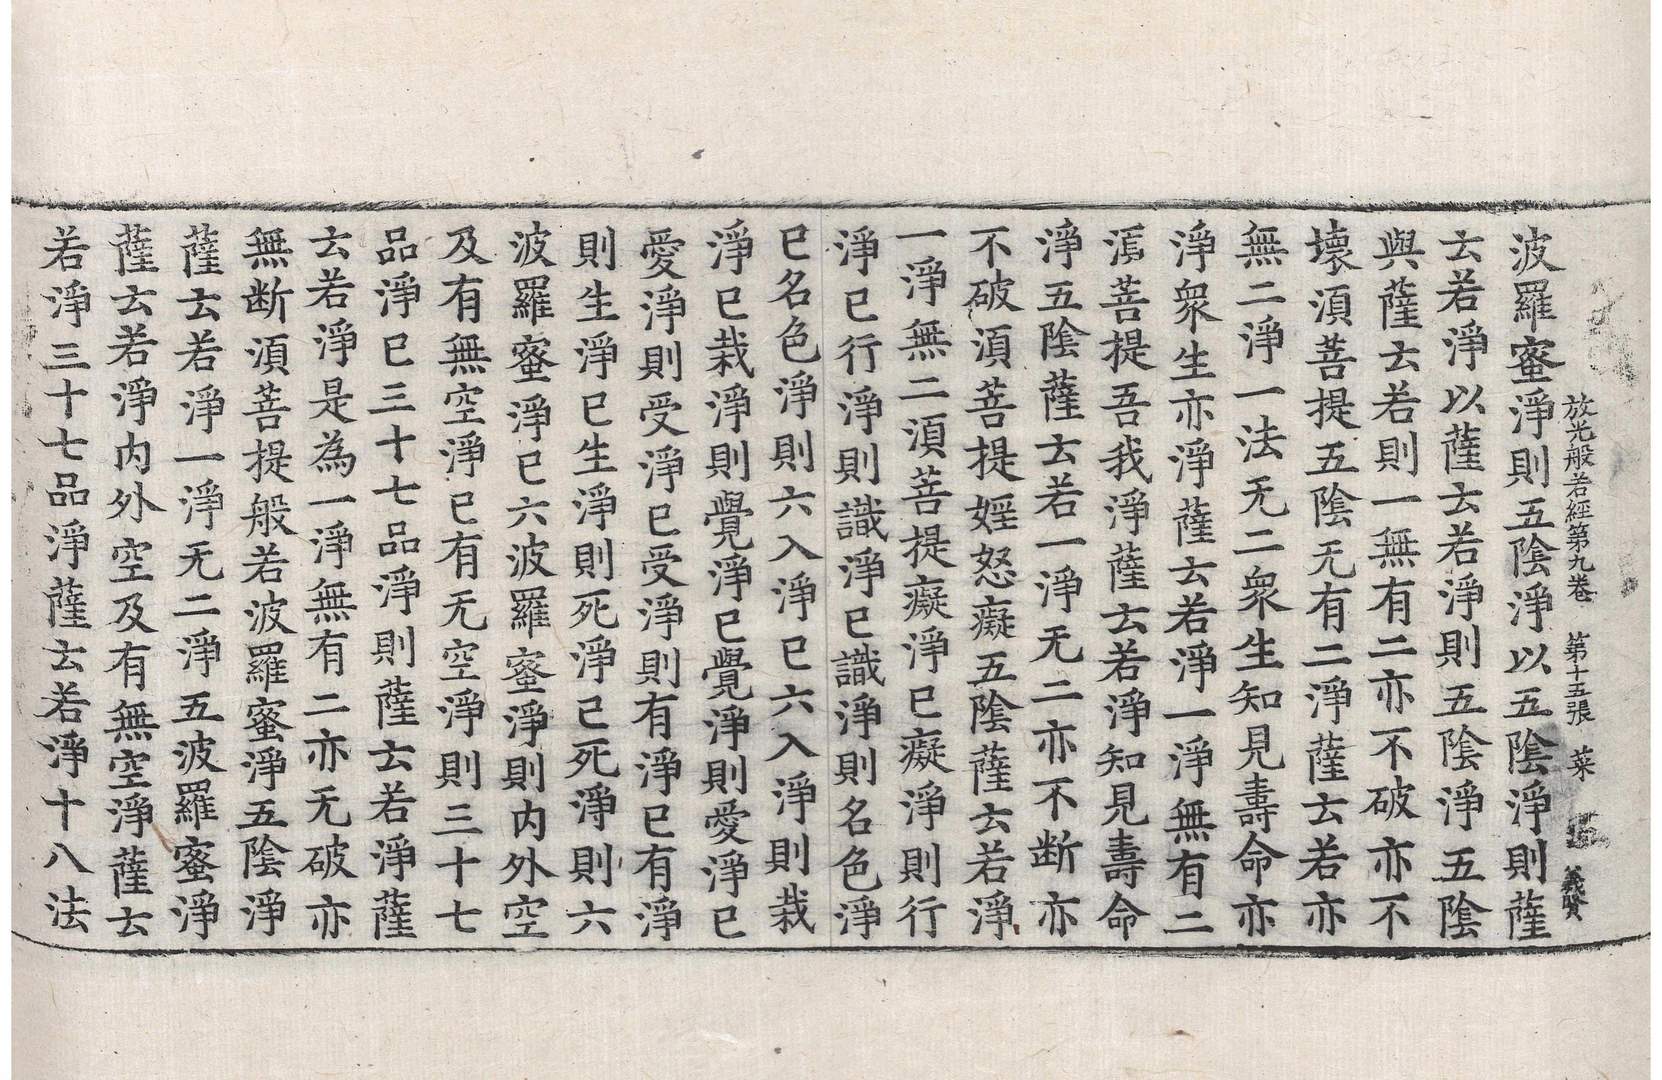 放光般若經第九卷 第十五張 菜 義賢
波羅蜜淨則五陰淨以五陰淨則薩
云若淨以薩云若淨則五陰淨五陰
與薩云若則一無有二亦不破亦不
壞須菩提五陰无有二淨薩云若亦
無二淨一法无二衆生知見壽命亦
淨衆生亦淨薩云若淨一淨無有二
湏菩提吾我淨薩云若淨知見壽命
淨五陰薩云若一淨无二亦不断亦
不破湏菩提婬怒癡五陰薩云若淨
一淨無二湏菩提癡淨已癡淨則行
淨已行淨則識淨已識淨則名色淨
已名色淨則六入淨已六入淨則栽
淨已栽淨則覺淨已覺淨則愛淨已
愛淨則受淨已受淨則有淨已有淨
則生淨已生淨則死淨已死淨則六
波羅蜜淨已六波羅蜜淨則内外空
及有無空淨已有无空淨則三十七
品淨已三十七品淨則薩云若淨薩
云若淨是為一淨無有二亦无破亦
無断湏菩提般若波羅蜜淨五陰淨
薩云若淨一淨无二淨五波羅蜜淨
薩云若淨内外空及有無空淨薩云
若淨三十七品淨薩云若淨十八法